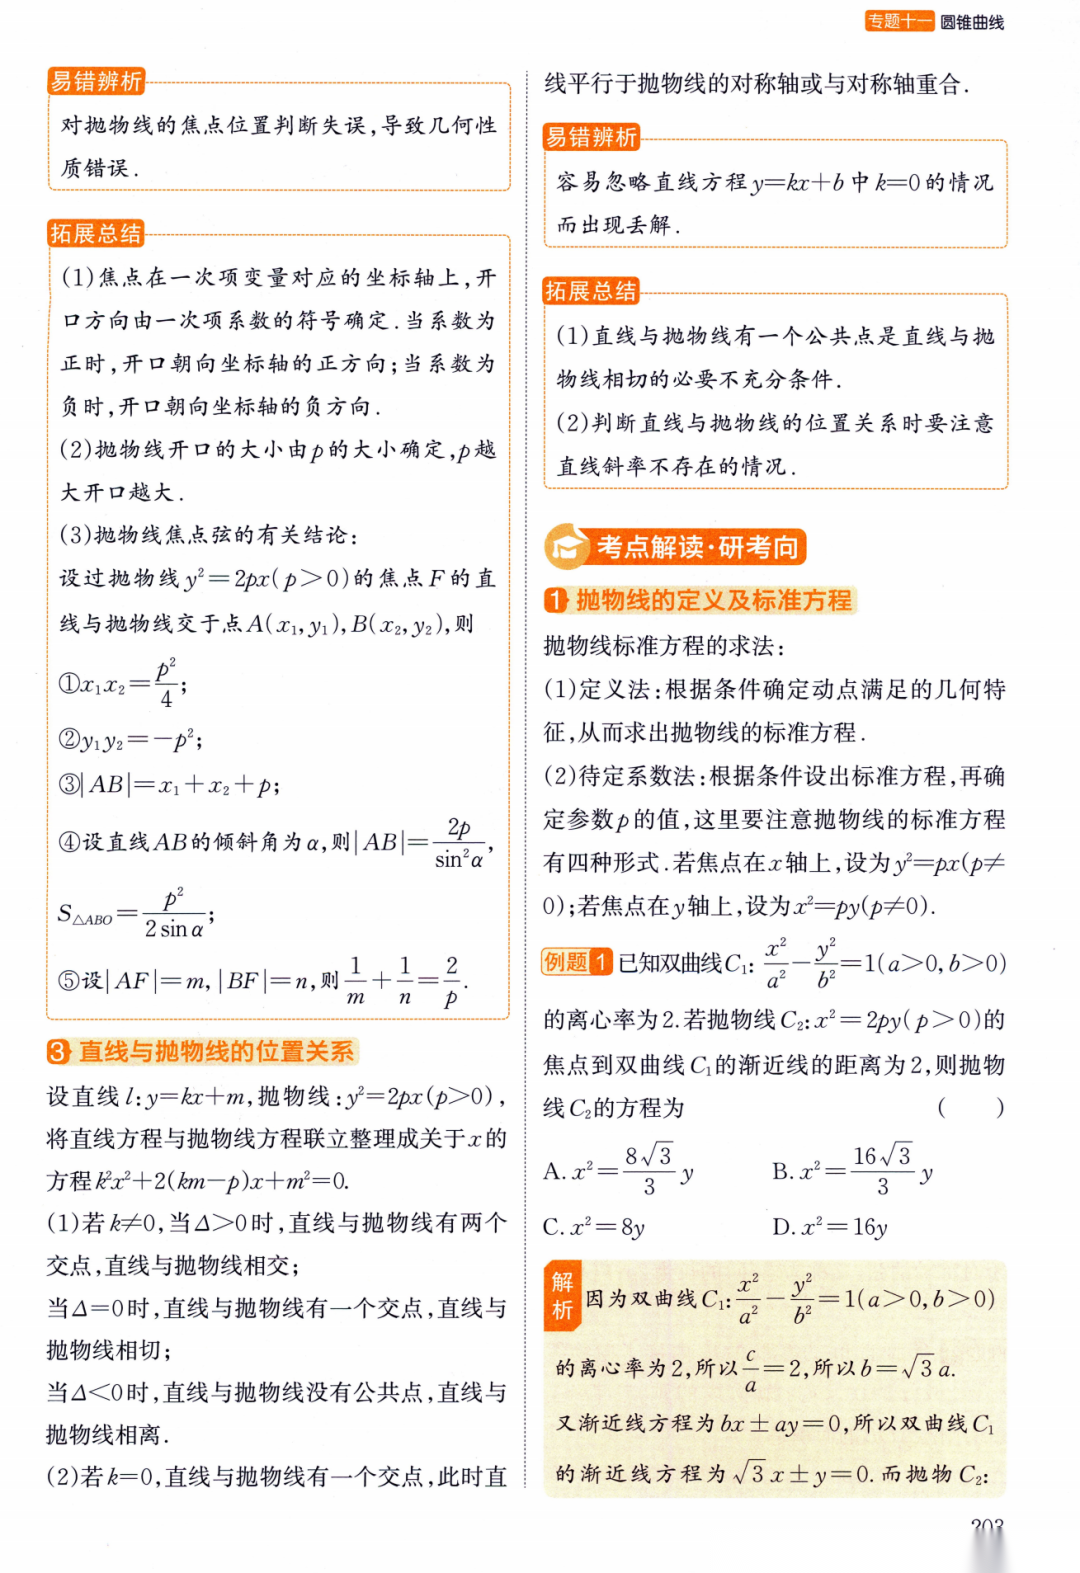 专题十一 圆锥曲线
易错辨析
对抛物线的焦点位置判断失误,导致几何性
质错误.
拓展总结
(1)焦点在一次项变量对应的坐标轴上,开
口方向由一次项系数的符号确定.当系数为
正时,开口朝向坐标轴的正方向;当系数为
负时,开口朝向坐标轴的负方向.
(2)抛物线开口的大小由p的大小确定,p越
大开口越大.
(3)抛物线焦点弦的有关结论:
设过抛物线y²=2px(p>0)的焦点F的直
线与抛物线交于点A(x₁,y₁),B(x₂,y₂),则
①x₁x₂=p²/4;
②y₁y₂=-p²;
③|AB|=x₁+x₂+p;
④设直线AB的倾斜角为α,则|AB|=2p/sin²α,
S△ABO=p²/2sinα;
⑤设|AF|=m,|BF|=n,则1/m+1/n=2/p.
3 直线与抛物线的位置关系
设直线l:y=kx+m,抛物线:y²=2px(p>0),
将直线方程与抛物线方程联立整理成关于x的
方程k²x²+2(km-p)x+m²=0.
(1)若k≠0,当Δ>0时,直线与抛物线有两个
交点,直线与抛物线相交;
当Δ=0时,直线与抛物线有一个交点,直线与
抛物线相切;
当Δ<0时,直线与抛物线没有公共点,直线与
抛物线相离.
(2)若k=0,直线与抛物线有一个交点,此时直
线平行于抛物线的对称轴或与对称轴重合.
易错辨析
容易忽略直线方程y=kx+b中k=0的情况
而出现丢解.
拓展总结
(1)直线与抛物线有一个公共点是直线与抛
物线相切的必要不充分条件.
(2)判断直线与抛物线的位置关系时要注意
直线斜率不存在的情况.
考点解读·研考向
1 抛物线的定义及标准方程
抛物线标准方程的求法:
(1)定义法:根据条件确定动点满足的几何特
征,从而求出抛物线的标准方程.
(2)待定系数法:根据条件设出标准方程,再确
定参数p的值,这里要注意抛物线的标准方程
有四种形式.若焦点在x轴上,设为y²=px(p≠
0);若焦点在y轴上,设为x²=py(p≠0).
例题1 已知双曲线C₁:x²/a²-y²/b²=1(a>0,b>0)
的离心率为2.若抛物线C₂:x²=2py(p>0)的
焦点到双曲线C₁的渐近线的距离为2,则抛物
线C₂的方程为 ( )
A.x²=8√3/3 y B.x²=16√3/3 y
C.x²=8y D.x²=16y
解析 因为双曲线C₁:x²/a²-y²/b²=1(a>0,b>0)
的离心率为2,所以c/a=2,所以b=√3a.
又渐近线方程为bx±ay=0,所以双曲线C₁
的渐近线方程为√3x±y=0.而抛物C₂:
203